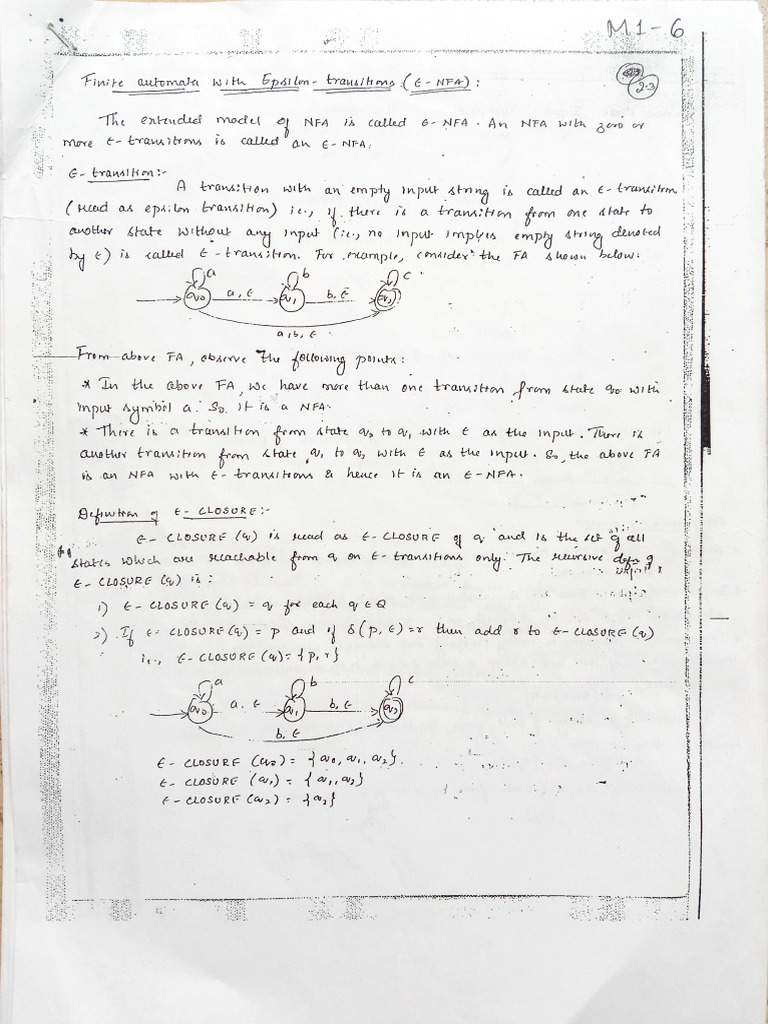 M1-6
2-3
Finite automata with Epsilon-transitions (ε-NFA):
The extended model of NFA is called ε-NFA. An NFA with zero or
more ε-transitions is called an ε-NFA.
ε-transition:-
A transition with an empty input string is called an ε-transition
(read as epsilon transition) i.e., if there is a transition from one state to
another state without any input (i.e., no input implies empty string denoted
by ε) is called ε-transition. For example, consider the FA shown below:
a b c
q0 a, ε q1 b, ε q2
a, b, ε
From above FA, observe the following points:
* In the above FA, we have more than one transition from state q0 with
input symbol a. So, it is a NFA.
* There is a transition from state q0 to q1 with ε as the input. There is
another transition from state q1 to q2 with ε as the input. So, the above FA
is an NFA with ε-transitions & hence it is an ε-NFA.
Definition of ε-CLOSURE:-
ε-CLOSURE (q) is read as ε-CLOSURE of q and is the set of all
states which are reachable from q on ε-transitions only. The recursive defn of
ε-CLOSURE (q) is:
1) ε-CLOSURE (q) = q for each q ∈ Q
2) If ε-CLOSURE (q) = p and if δ(p, ε) = r then add r to ε-CLOSURE (q)
i.e., ε-CLOSURE (q) = {p, r}
a b c
q0 a, ε q1 b, ε q2
b, ε
ε-CLOSURE (q0) = {q0, q1, q2}.
ε-CLOSURE (q1) = {q1, q2}
ε-CLOSURE (q2) = {q2}